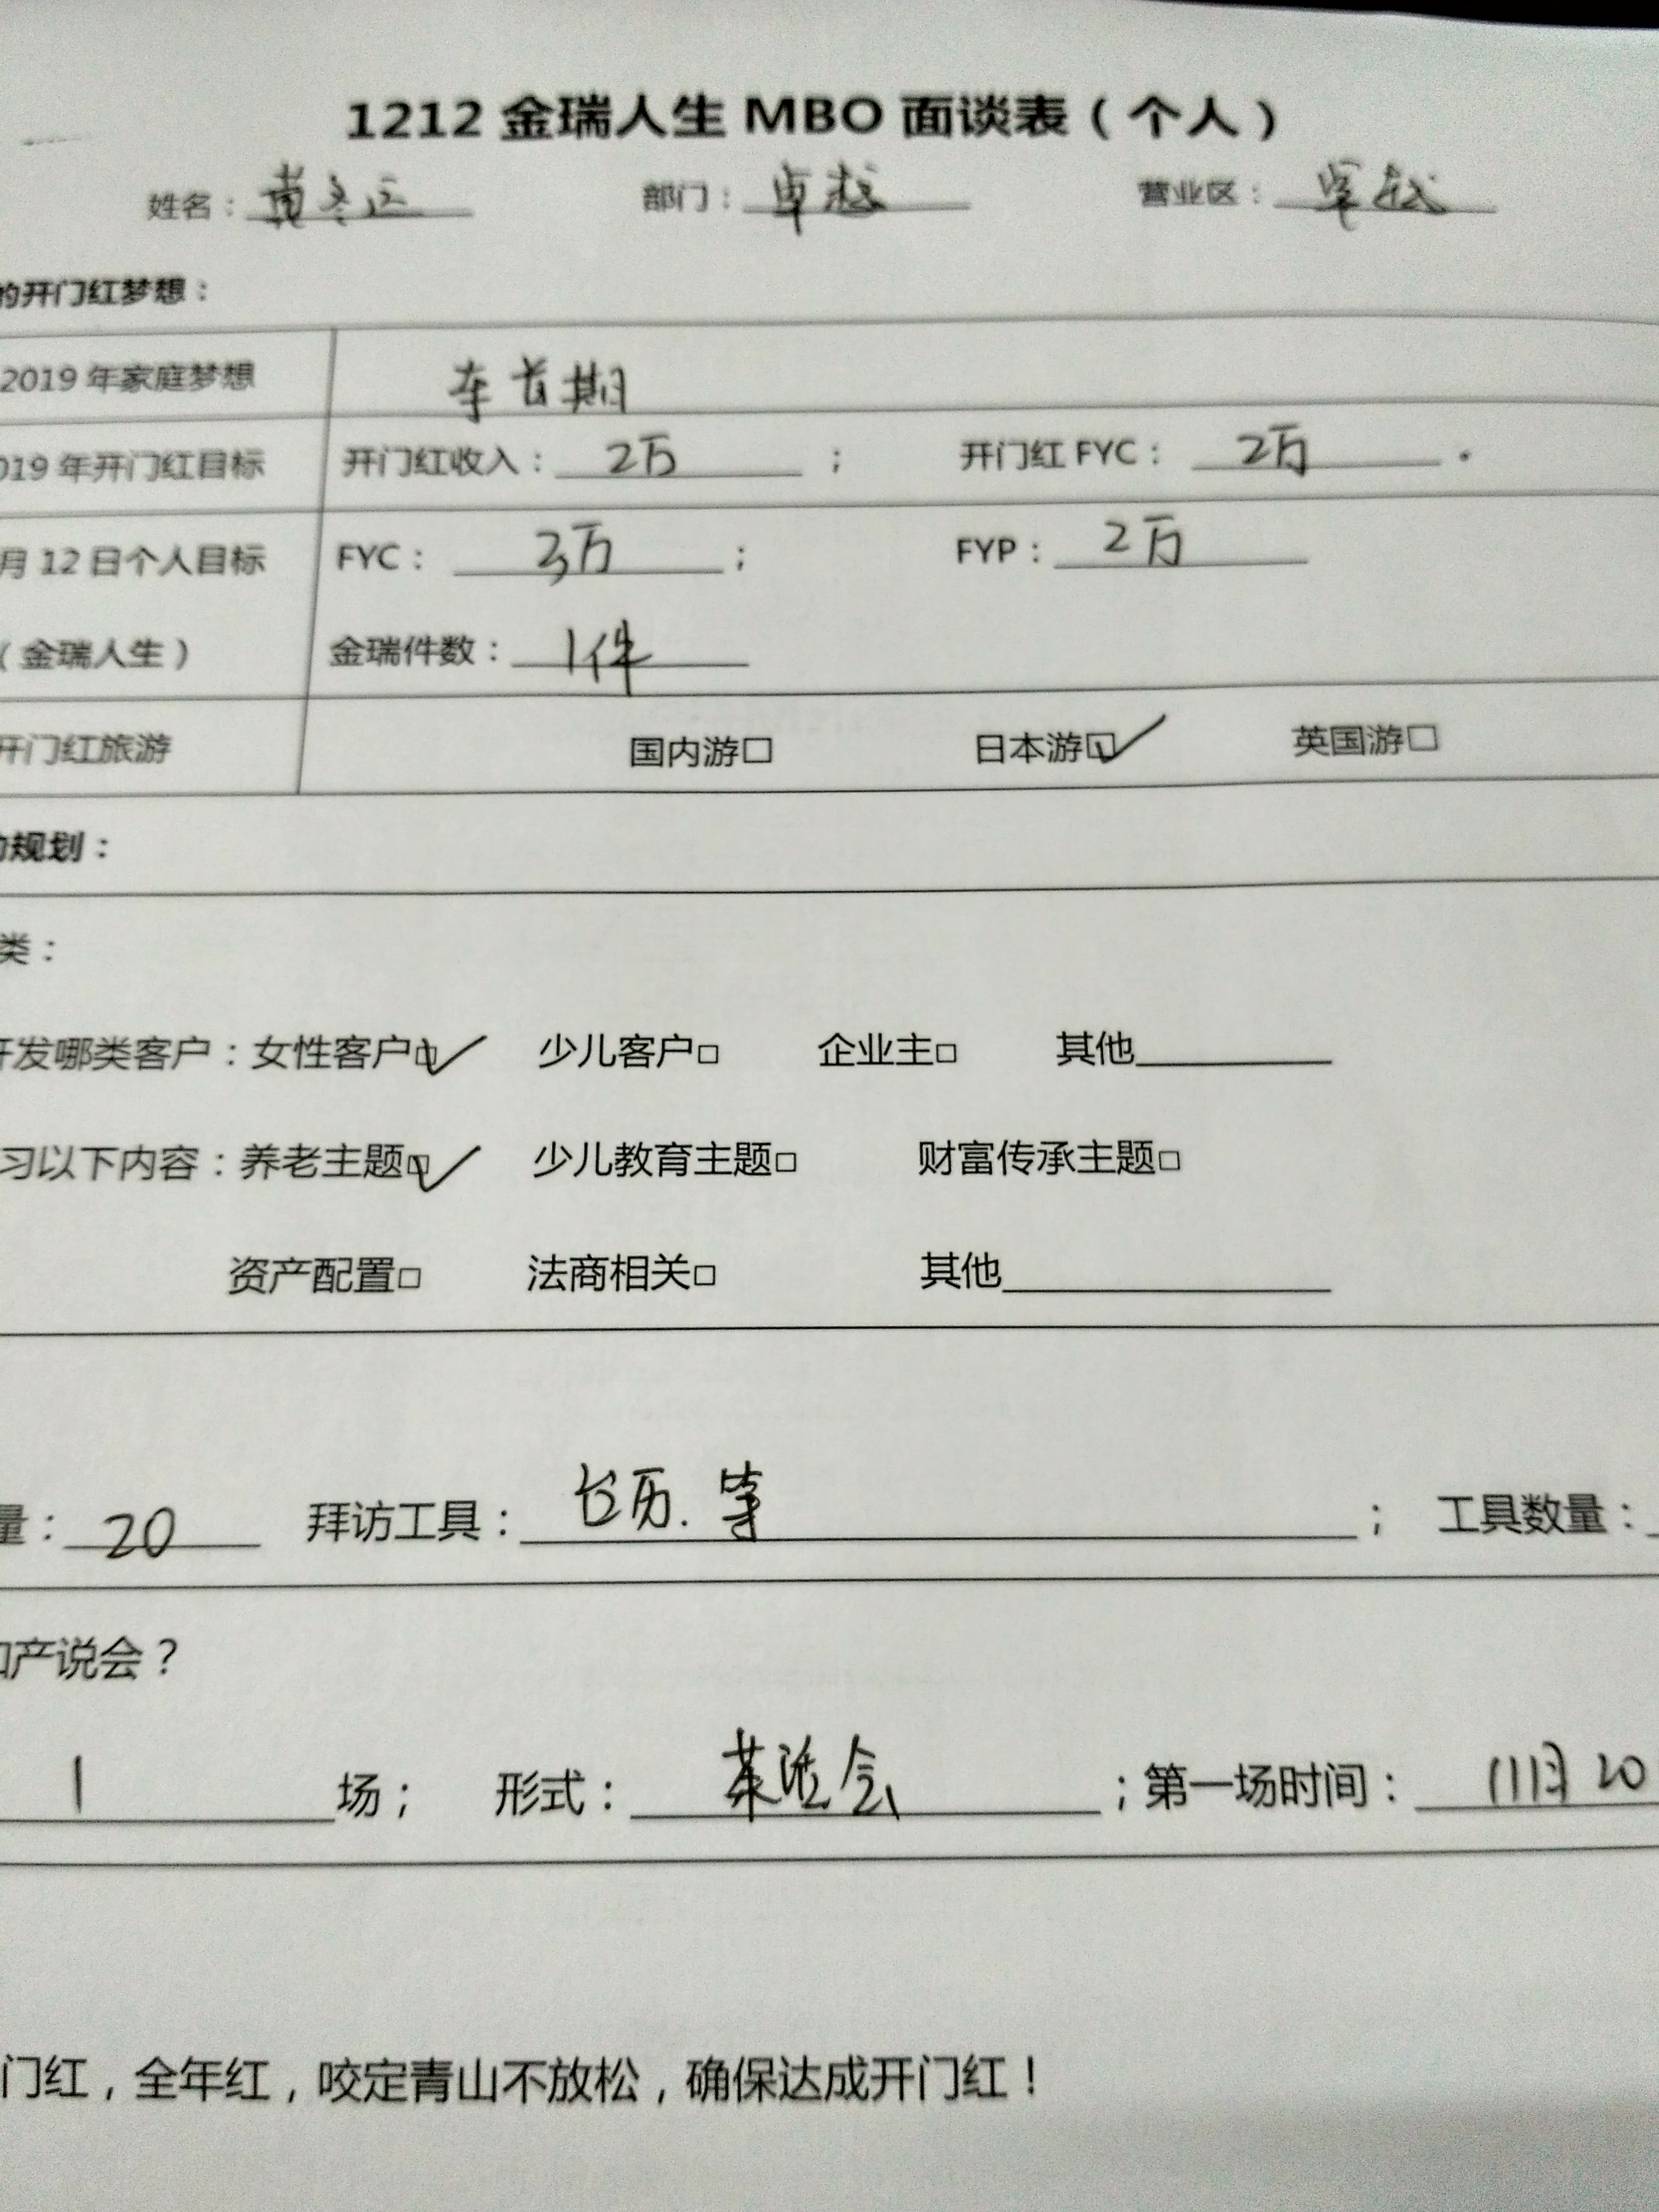 1212 金瑞人生 MBO 面谈表（个人）
姓名： 部门：卓越 营业区：卓越
的开门红梦想：
2019 年家庭梦想 车首期
019 年开门红目标 开门红收入：2万； 开门红 FYC：2万。
月 12 日个人目标 FYC：3万； FYP：2万
（金瑞人生） 金瑞件数：1件
开门红旅游 国内游□ 日本游☑ 英国游□
规划：
类：
开发哪类客户：女性客户☑ 少儿客户□ 企业主□ 其他
习以下内容：养老主题☑ 少儿教育主题□ 财富传承主题□
资产配置□ 法商相关□ 其他
量：20 拜访工具：台历.等； 工具数量：
产说会？
1 场； 形式：茶话会；第一场时间：11月20
门红，全年红，咬定青山不放松，确保达成开门红！